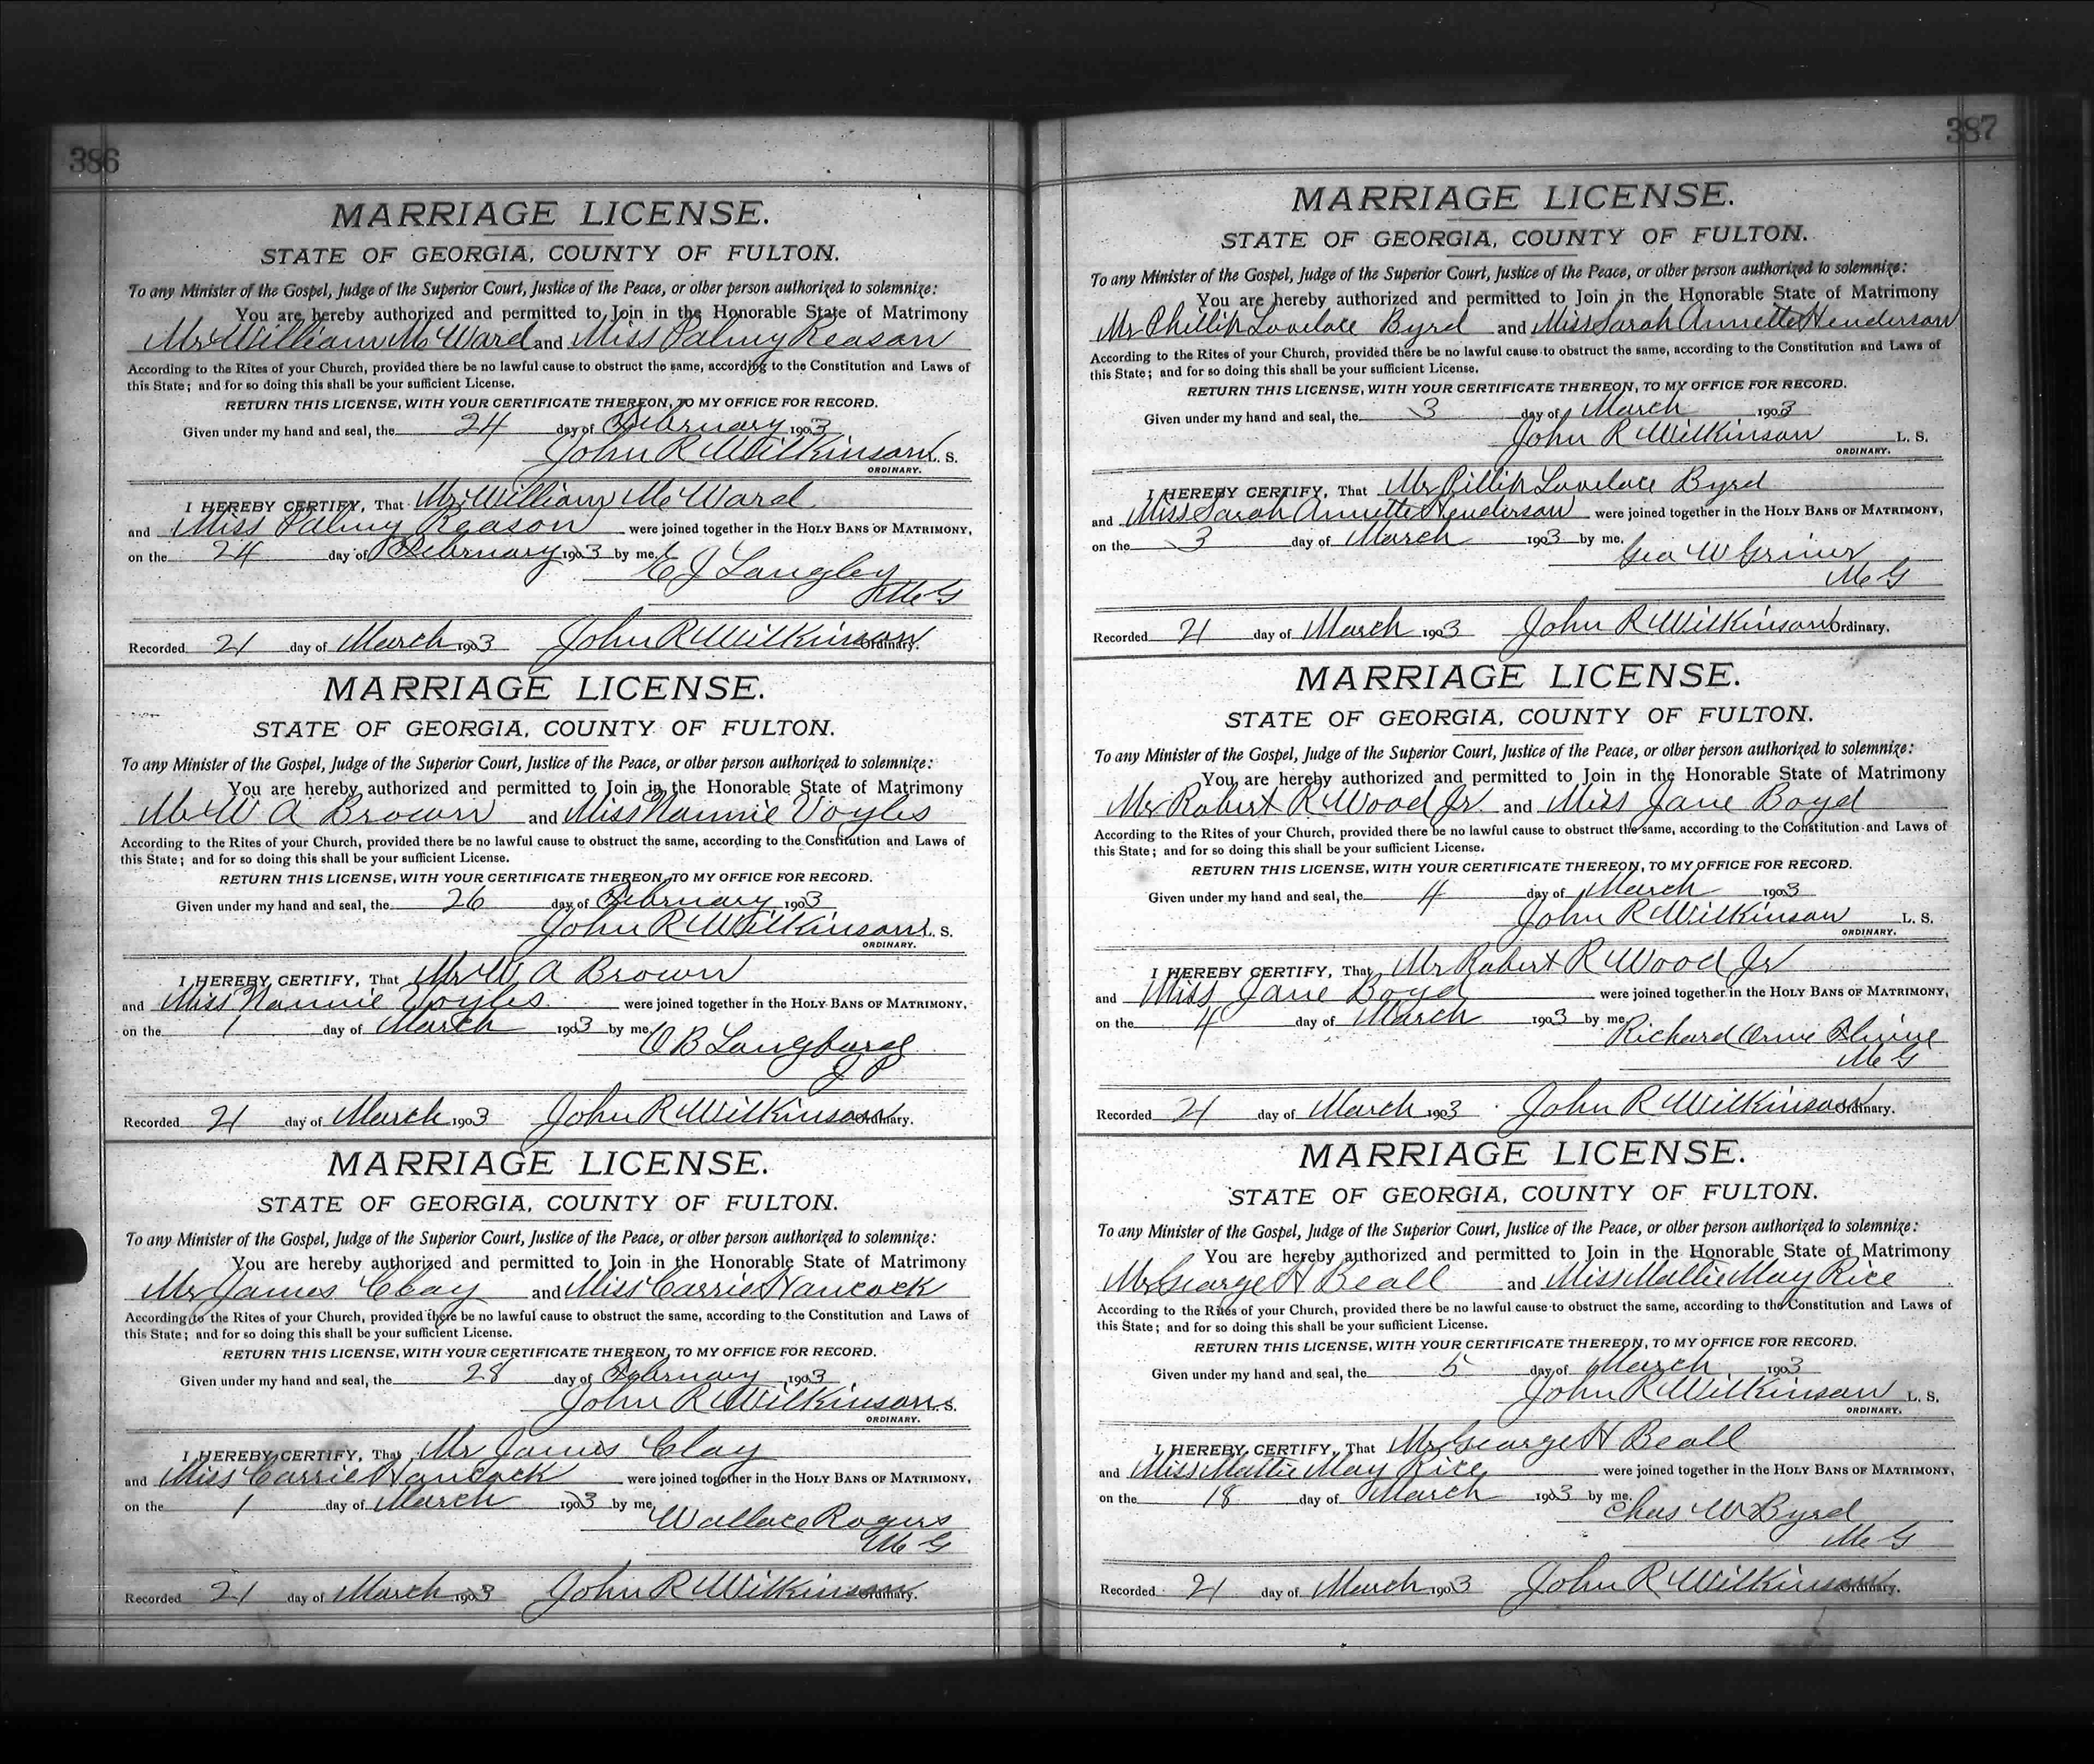 386
MARRIAGE LICENSE.
STATE OF GEORGIA, COUNTY OF FULTON.
To any Minister of the Gospel, Judge of the Superior Court, Justice of the Peace, or other person authorized to solemnize:
You are hereby authorized and permitted to Join in the Honorable State of Matrimony
Mr William M Ward and Miss Palmy Reason
According to the Rites of your Church, provided there be no lawful cause to obstruct the same, according to the Constitution and Laws of
this State; and for so doing this shall be your sufficient License.
RETURN THIS LICENSE, WITH YOUR CERTIFICATE THEREON, TO MY OFFICE FOR RECORD.
Given under my hand and seal, the 24 day of February 1903
John R Wilkinson L. S.
ORDINARY.
I HEREBY CERTIFY, That Mr William M Ward
and Miss Palmy Reason were joined together in the HOLY BANS OF MATRIMONY,
on the 24 day of February 1903 by me,
E J Langley
M G
Recorded 21 day of March 1903 John R Wilkinson Ordinary.
MARRIAGE LICENSE.
STATE OF GEORGIA, COUNTY OF FULTON.
To any Minister of the Gospel, Judge of the Superior Court, Justice of the Peace, or other person authorized to solemnize:
You are hereby authorized and permitted to Join in the Honorable State of Matrimony
Mr W A Brown and Miss Nannie Voyles
According to the Rites of your Church, provided there be no lawful cause to obstruct the same, according to the Constitution and Laws of
this State; and for so doing this shall be your sufficient License.
RETURN THIS LICENSE, WITH YOUR CERTIFICATE THEREON, TO MY OFFICE FOR RECORD.
Given under my hand and seal, the 26 day of February 1903
John R Wilkinson L. S.
ORDINARY.
I HEREBY CERTIFY, That Mr W A Brown
and Miss Nannie Voyles were joined together in the HOLY BANS OF MATRIMONY,
on the 1 day of March 1903 by me,
O B
J P
Recorded 21 day of March 1903 John R Wilkinson Ordinary.
MARRIAGE LICENSE.
STATE OF GEORGIA, COUNTY OF FULTON.
To any Minister of the Gospel, Judge of the Superior Court, Justice of the Peace, or other person authorized to solemnize:
You are hereby authorized and permitted to Join in the Honorable State of Matrimony
Mr James Clay and Miss Carrie Hancock
According to the Rites of your Church, provided there be no lawful cause to obstruct the same, according to the Constitution and Laws of
this State; and for so doing this shall be your sufficient License.
RETURN THIS LICENSE, WITH YOUR CERTIFICATE THEREON, TO MY OFFICE FOR RECORD.
Given under my hand and seal, the 28 day of February 1903
John R Wilkinson L. S.
ORDINARY.
I HEREBY CERTIFY, That Mr James Clay
and Miss Carrie Hancock were joined together in the HOLY BANS OF MATRIMONY,
on the 1 day of March 1903 by me,
Wallace Rogers
M G
Recorded 21 day of March 1903 John R Wilkinson Ordinary.
387
MARRIAGE LICENSE.
STATE OF GEORGIA, COUNTY OF FULTON.
To any Minister of the Gospel, Judge of the Superior Court, Justice of the Peace, or other person authorized to solemnize:
You are hereby authorized and permitted to Join in the Honorable State of Matrimony
Mr Phillip Lovelace Byrd and Miss Sarah Annette Henderson
According to the Rites of your Church, provided there be no lawful cause to obstruct the same, according to the Constitution and Laws of
this State; and for so doing this shall be your sufficient License.
RETURN THIS LICENSE, WITH YOUR CERTIFICATE THEREON, TO MY OFFICE FOR RECORD.
Given under my hand and seal, the 3 day of March 1903
John R Wilkinson L. S.
ORDINARY.
I HEREBY CERTIFY, That Mr Pillip Lovelace Byrd
and Miss Sarah Annette Henderson were joined together in the HOLY BANS OF MATRIMONY,
on the 3 day of March 1903 by me.
Geo W Griner
M G
Recorded 21 day of March 1903 John R Wilkinson Ordinary.
MARRIAGE LICENSE.
STATE OF GEORGIA, COUNTY OF FULTON.
To any Minister of the Gospel, Judge of the Superior Court, Justice of the Peace, or other person authorized to solemnize:
You are hereby authorized and permitted to Join in the Honorable State of Matrimony
Mr Robert R Wood Jr. and Miss Jane Boyd
According to the Rites of your Church, provided there be no lawful cause to obstruct the same, according to the Constitution and Laws of
this State; and for so doing this shall be your sufficient License.
RETURN THIS LICENSE, WITH YOUR CERTIFICATE THEREON, TO MY OFFICE FOR RECORD.
Given under my hand and seal, the 4 day of March 1903
John R Wilkinson L. S.
ORDINARY.
I HEREBY CERTIFY, That Mr Robert R Wood Jr
and Miss Jane Boyd were joined together in the HOLY BANS OF MATRIMONY,
on the 4 day of March 1903 by me.
Richard Orme Flinne
M G
Recorded 21 day of March 1903 John R Wilkinson Ordinary.
MARRIAGE LICENSE.
STATE OF GEORGIA, COUNTY OF FULTON.
To any Minister of the Gospel, Judge of the Superior Court, Justice of the Peace, or other person authorized to solemnize:
You are hereby authorized and permitted to Join in the Honorable State of Matrimony
Mr George H Beall and Miss Mattie May Rice
According to the Rites of your Church, provided there be no lawful cause to obstruct the same, according to the Constitution and Laws of
this State; and for so doing this shall be your sufficient License.
RETURN THIS LICENSE, WITH YOUR CERTIFICATE THEREON, TO MY OFFICE FOR RECORD.
Given under my hand and seal, the 5 day of March 1903
John R Wilkinson L. S.
ORDINARY.
I HEREBY CERTIFY, That Mr George H Beall
and Miss Mattie May Rice were joined together in the HOLY BANS OF MATRIMONY,
on the 18 day of March 1903 by me.
Chas W Byrd
M G
Recorded 21 day of March 1903 John R Wilkinson Ordinary.